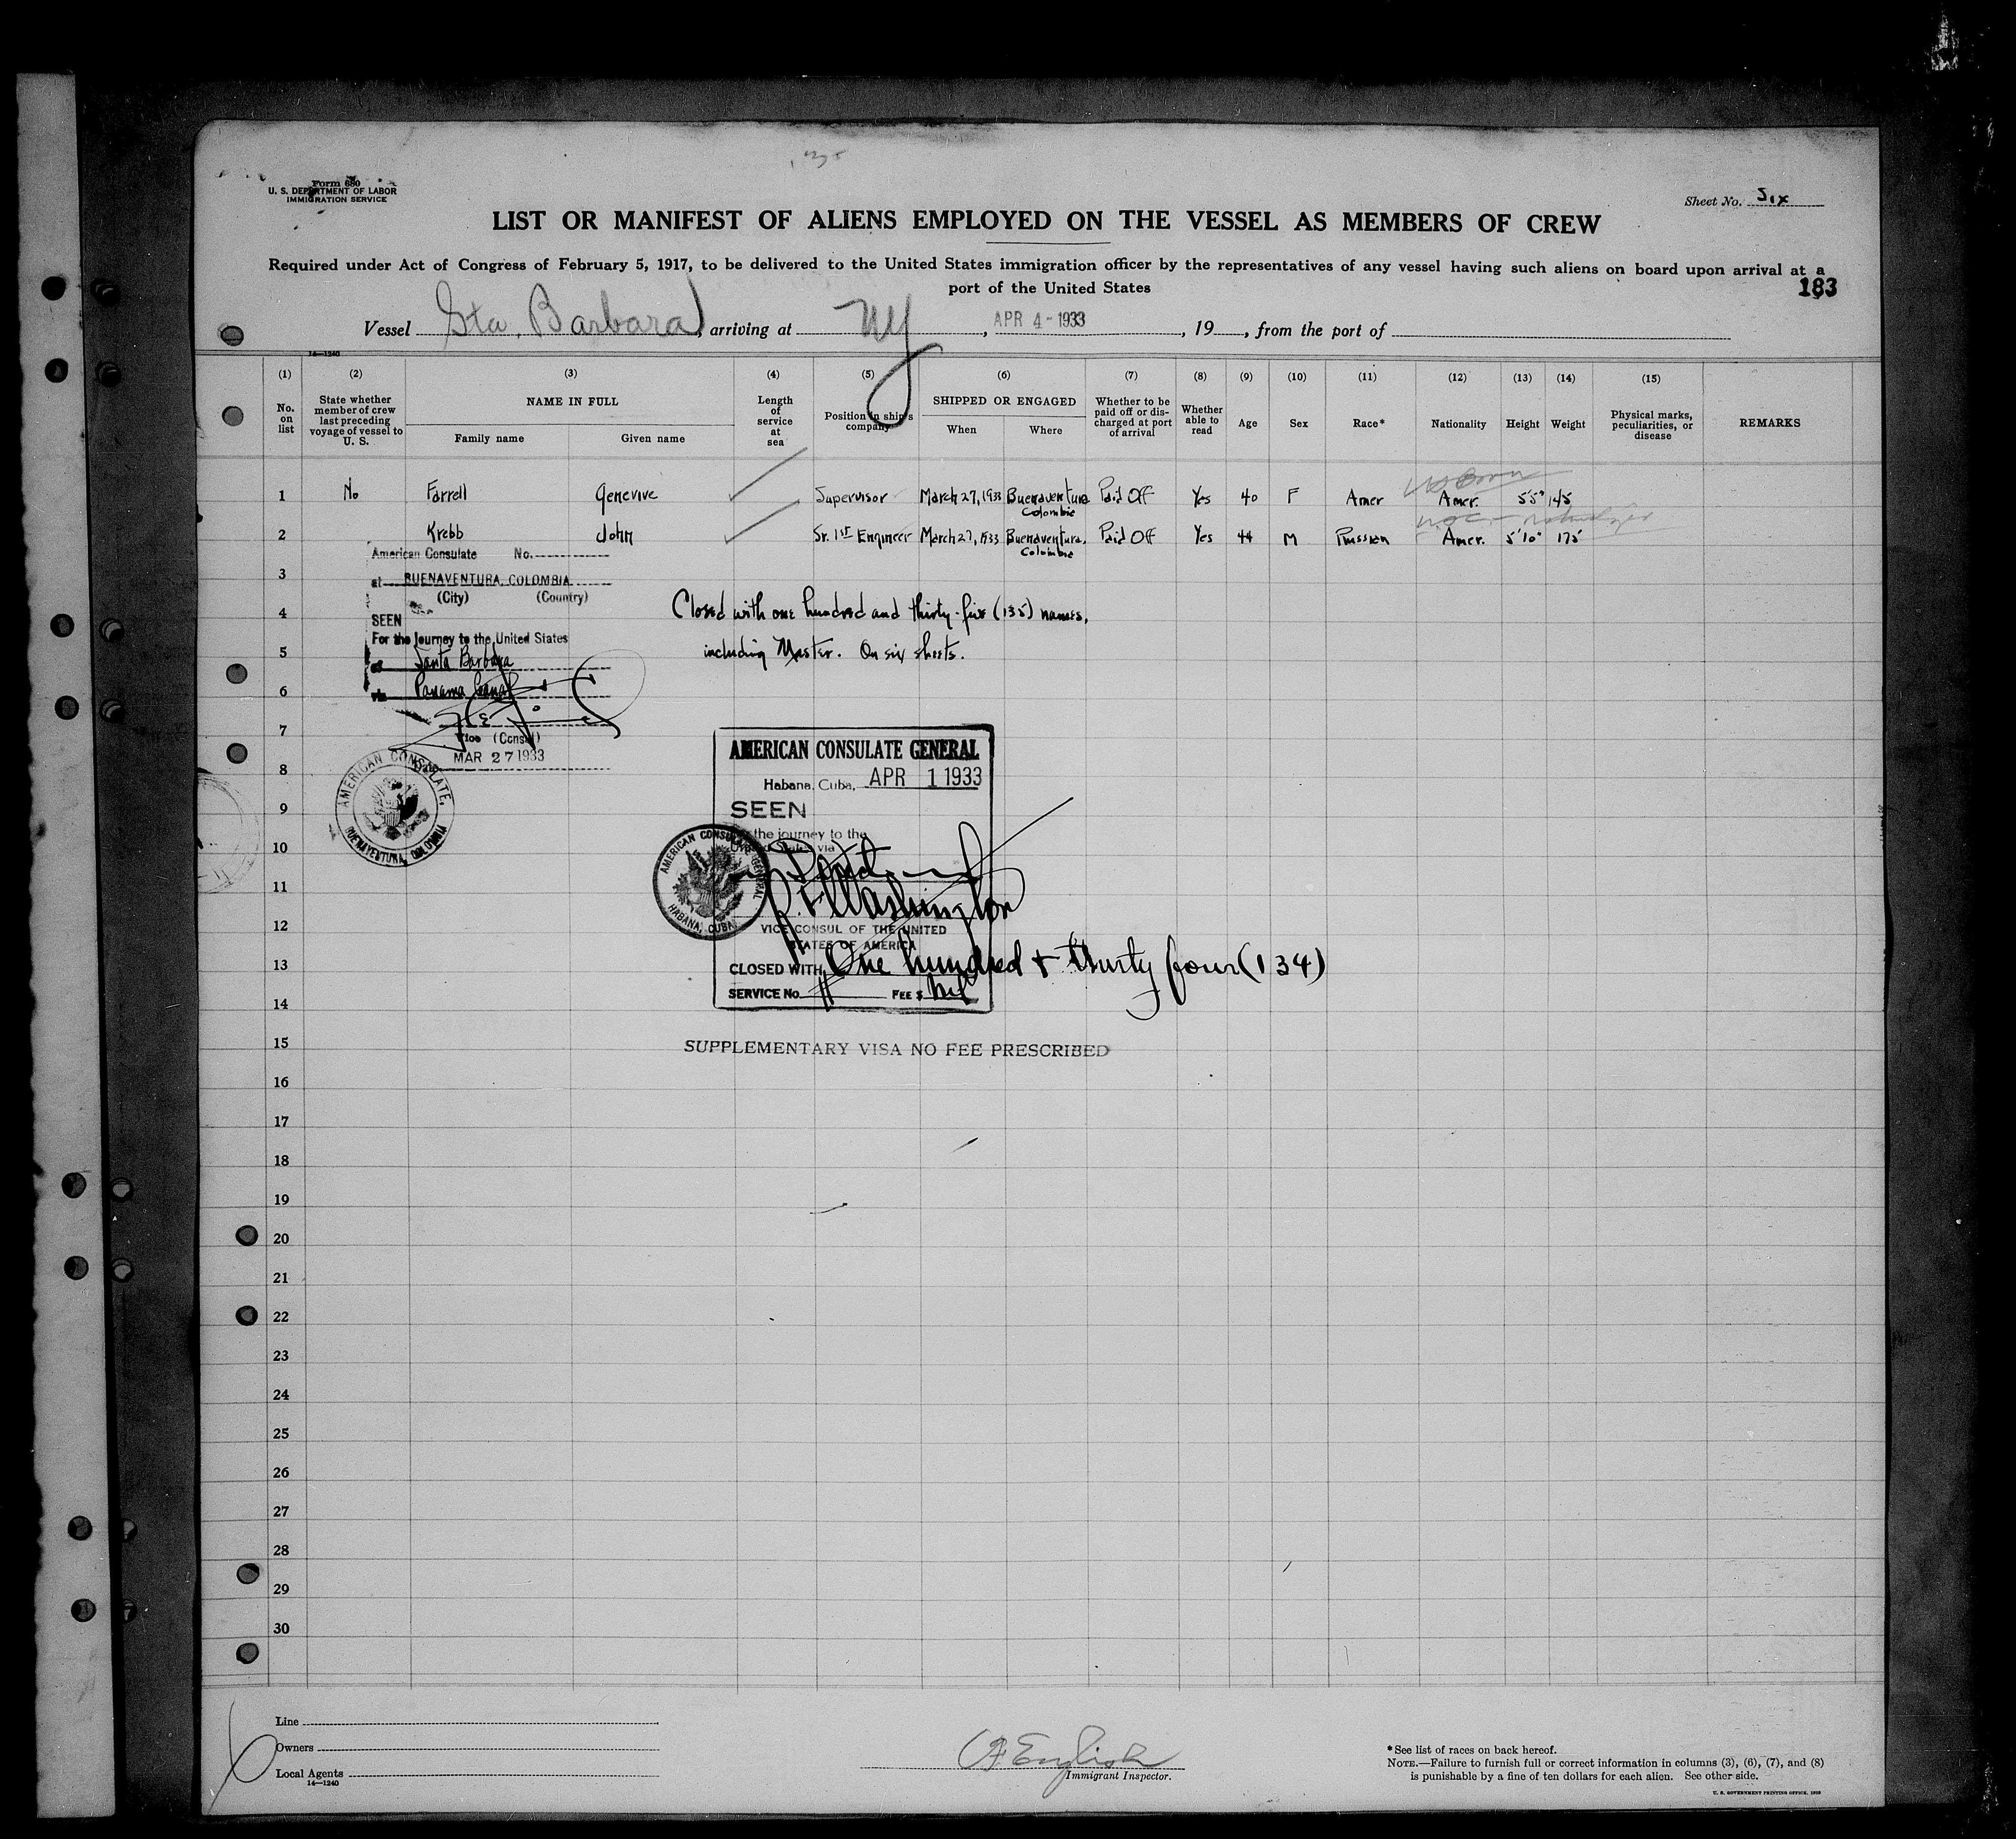 Form 680
U. S. DEPARTMENT OF LABOR
IMMIGRATION SERVICE
Sheet No. Six
LIST OR MANIFEST OF ALIENS EMPLOYED ON THE VESSEL AS MEMBERS OF CREW
Required under Act of Congress of February 5, 1917, to be delivered to the United States immigration officer by the representatives of any vessel having such aliens on board upon arrival at a
port of the United States
183
Vessel Sta. Barbara, arriving at NY, APR 4 - 1933, 19__, from the port of
14—1240
(1) (2) (3) (4) (5) (6) (7) (8) (9) (10) (11) (12) (13) (14) (15)
No. on list
State whether member of crew last preceding voyage of vessel to U. S.
NAME IN FULL
Family name Given name
Length of service at sea
Position in ship's company
SHIPPED OR ENGAGED
When Where
Whether to be paid off or discharged at port of arrival
Whether able to read
Age
Sex
Race*
Nationality
Height
Weight
Physical marks, peculiarities, or disease
REMARKS
US Born
1 No Farrell Genevive Supervisor March 27, 1933 Buenaventura Colombia Paid Off Yes 40 F Amer Amer. 5'5" 145
2 Krebb John Sr. 1st Engineer March 27, 1933 Buenaventura, Colombia Paid Off Yes 44 M Russian Amer. 5'10" 175
American Consulate No.
at BUENAVENTURA, COLOMBIA
(City) (Country)
SEEN
For the journey to the United States
Santa Barbara
via Panama Canal
Vice (Consul)
MAR 27 1933
AMERICAN CONSULATE, BUENAVENTURA, COLOMBIA
Closed with one hundred and thirty-five (135) names,
including Master. On six sheets.
AMERICAN CONSULATE GENERAL
Habana, Cuba, APR 1 1933
SEEN
the journey to the
via
AMERICAN CONSULATE GENERAL HABANA, CUBA
Washington
VICE CONSUL OF THE UNITED
STATES OF AMERICA
CLOSED WITH One hundred + thirty four (134)
SERVICE No. FEE $ Nil
SUPPLEMENTARY VISA NO FEE PRESCRIBED
3
4
5
6
7
8
9
10
11
12
13
14
15
16
17
18
19
20
21
22
23
24
25
26
27
28
29
30
Line
Owners
Local Agents
14—1240
English
Immigrant Inspector.
* See list of races on back hereof.
NOTE.—Failure to furnish full or correct information in columns (3), (6), (7), and (8)
is punishable by a fine of ten dollars for each alien. See other side.